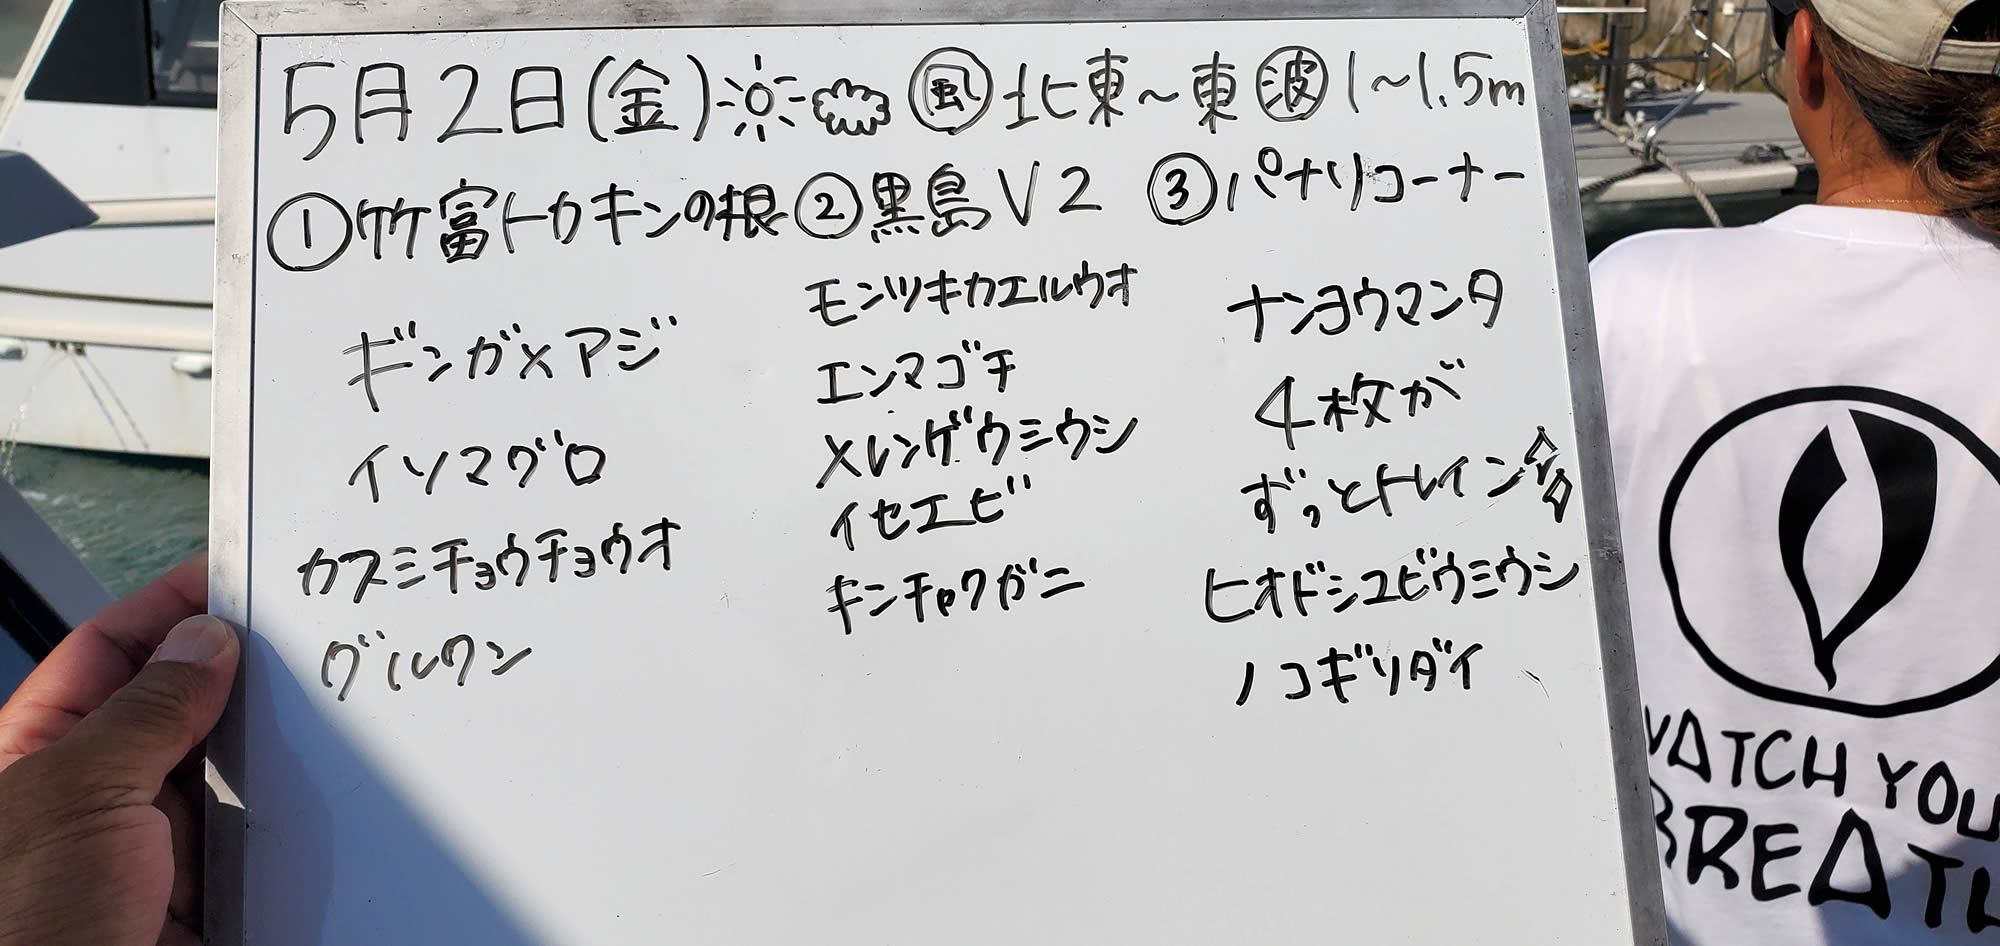 5月2日(金) 風 北東～東 波 1～1.5m
①竹富トカキンの根 ②黒島V2 ③パナリコーナー
ギンガメアジ
イソマグロ
カスミチョウチョウオ
グルクン
モンツキカエルウオ
エンマゴチ
メレンゲウミウシ
イセエビ
キンチャクガニ
ナンヨウマンタ
4枚が
ずっとトレイン
ヒオドシユビウミウシ
ノコギリダイ
WATCH YOU
BREAT